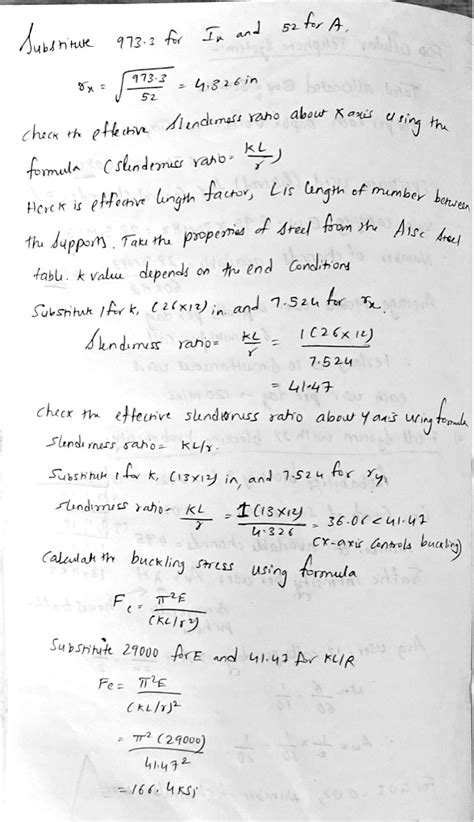 Substitute 973.3 for Ix and 52 for A.
rx = √(973.3/52) = 4.326 in
check the effective slenderness ratio about x axis using the
formula (slenderness ratio = KL/r)
Here K is effective length factor, L is length of member between
the supports. Take the properties of steel from the AISC steel
table. K value depends on the end conditions
Substitute 1 for k, (26×12) in, and 7.524 for rx.
Slenderness ratio = KL/r = 1(26×12)/7.524
= 41.47
check the effective slenderness ratio about y axis using formula
slenderness ratio = KL/r.
Substitute 1 for K, (13×12) in, and 7.524 for ry,
slenderness ratio = KL/r = 1(13×12)/4.326 = 36.06 < 41.47
(x-axis controls buckling)
Calculate the buckling stress using formula
Fe = π²E/(KL/r²)
Substitute 29000 for E and 41.47 for KL/R
Fe = π²E/(KL/r)²
= π²(29000)/41.47²
= 166.4 ksi